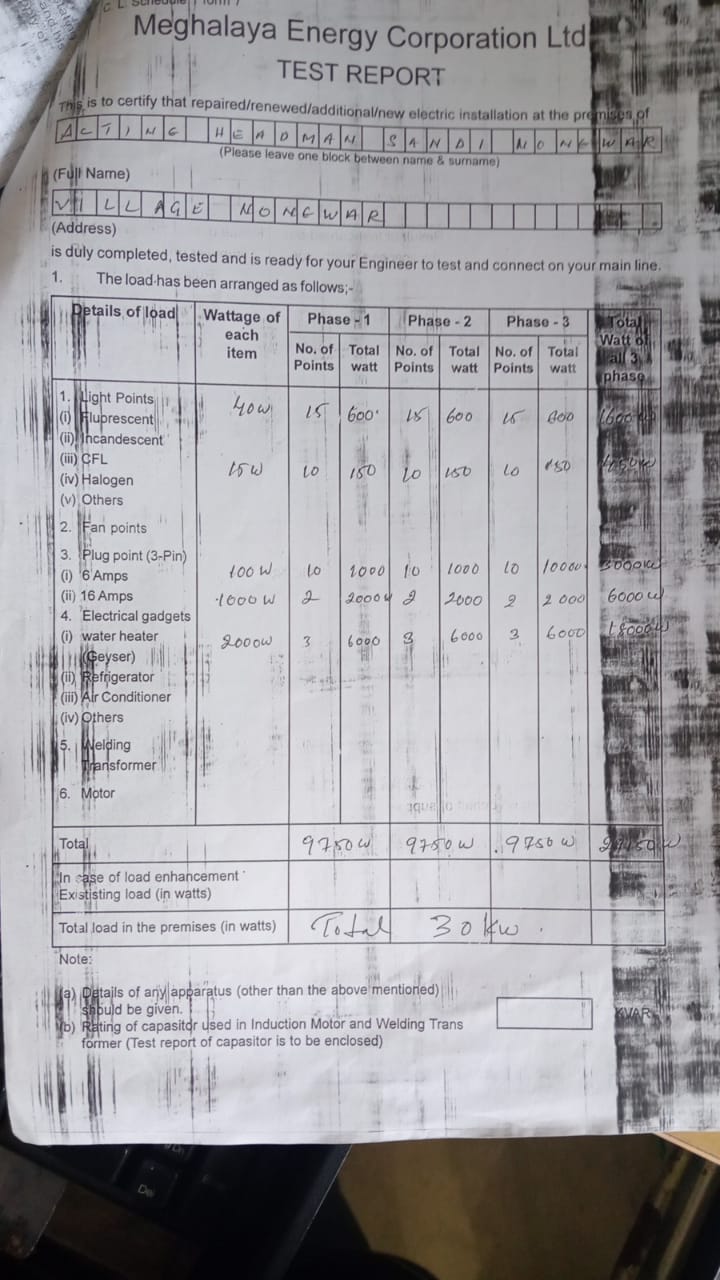 Meghalaya Energy Corporation Ltd
TEST REPORT
This is to certify that repaired/renewed/additional/new electric installation at the premises of
ACTING HEADMAN SANDI NONGWAR
(Please leave one block between name & surname)
(Full Name)
VILLAGE NONGWAR
(Address)
is duly completed, tested and is ready for your Engineer to test and connect on your main line.
1. The load has been arranged as follows;-
Details of load Wattage of each item Phase - 1 Phase - 2 Phase - 3 Total Watt of all 3 phase
No. of Points Total watt No. of Points Total watt No. of Points Total watt
1. Light Points
(i) Fluprescent 40W 15 600 15 600 15 600
(ii) Incandescent
(iii) CFL 15W 10 150 10 150 10 150
(iv) Halogen
(v) Others
2. Fan points
3. Plug point (3-Pin)
(i) 6 Amps 100W 10 1000 10 1000 10 1000 3000W
(ii) 16 Amps 1000W 2 2000W 2 2000 2 2000 6000W
4. Electrical gadgets
(i) water heater 2000W 3 6000 3 6000 3 6000 18000W
(Geyser)
(ii) Refrigerator
(iii) Air Conditioner
(iv) Others
5. Welding
Transformer
6. Motor
Total 9750W 9750W 9750W
In case of load enhancement
Exististing load (in watts)
Total load in the premises (in watts) Total 30 KW.
Note:
(a) Details of any apparatus (other than the above mentioned)
should be given.
(b) Rating of capasitor used in Induction Motor and Welding Trans KVAR
former (Test report of capasitor is to be enclosed)